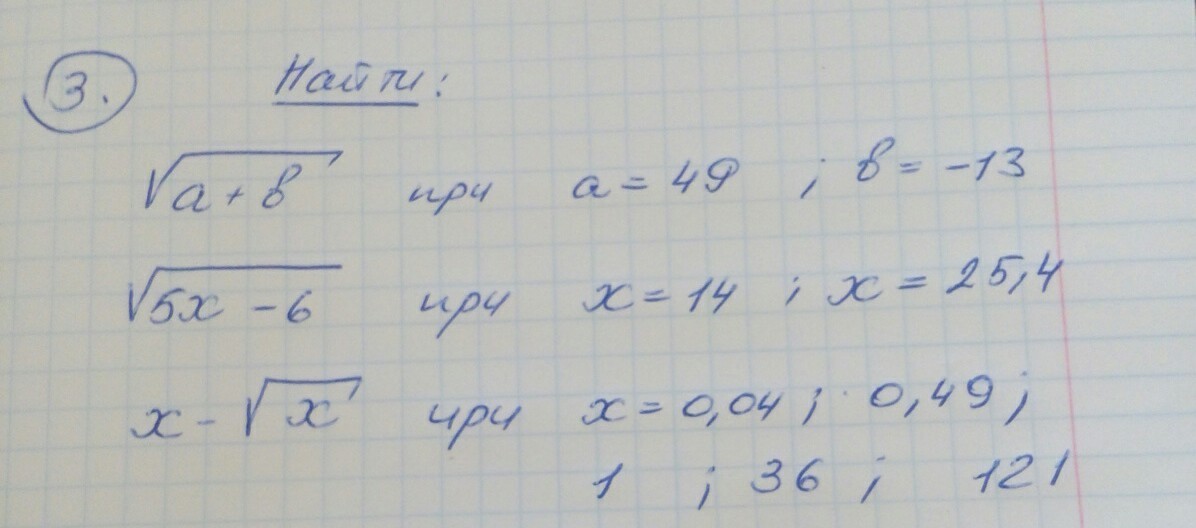 3. Найти:
√a+b при a = 49 ; b = -13
√5x - 6 при x = 14 ; x = 25,4
x - √x при x = 0,04 ; 0,49 ;
1 ; 36 ; 121